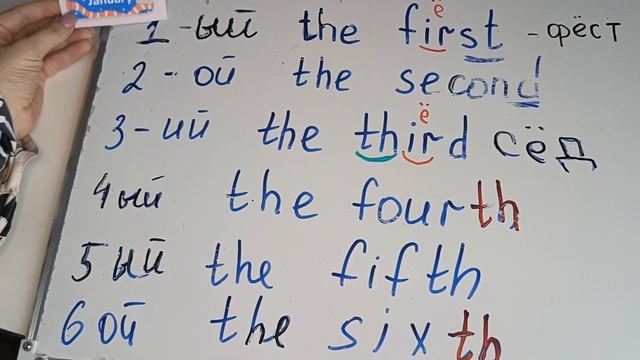 January
1-ый the first - фёст
ё
2-ой the second
3-ий the third сёд
ё
4ый the fourth
5ый the fifth
6ой the sixth